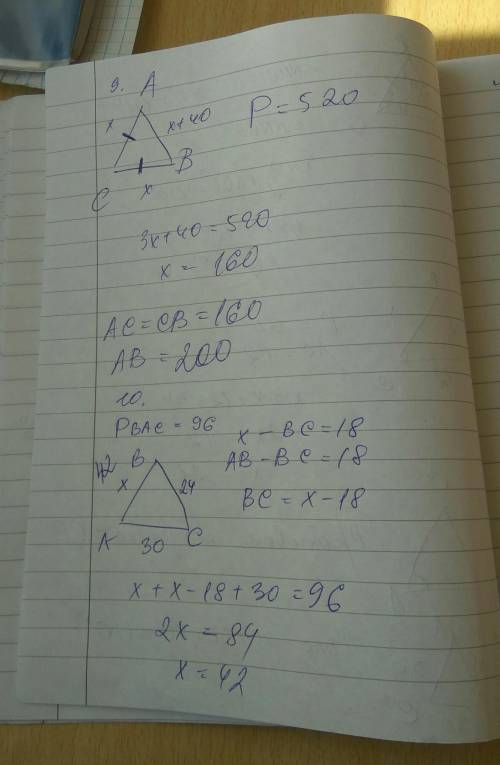 9.
A
x
x+40
P=520
C
B
x
3x+40=520
x = 160
AC=CB=160
AB = 200
10.
PBAC = 96
x - BC=18
42 B
AB-BC=18
x
24
BC = x-18
A
C
30
x+x-18+30=96
2x = 84
x = 42